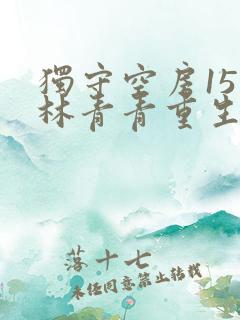 獨守空房15
林青青重生
落十七
未經同意禁止轉載